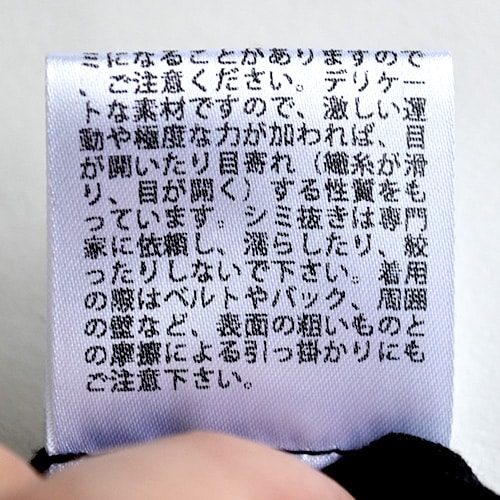 ミになることがありますので
、ご注意ください。デリケー
トな素材ですので、激しい運
動や極度な力が加われば、目
が開いたり目寄れ（織糸が滑
り、目が開く）する性質も
っています。シミ抜きは、専門
家に依頼し、濡らしたり、絞
ったりしないで下さい。着用
の際はベルトやバック、周囲
の壁など、表面の粗いものと
の摩擦による引っ掛かりにも
ご注意下さい。